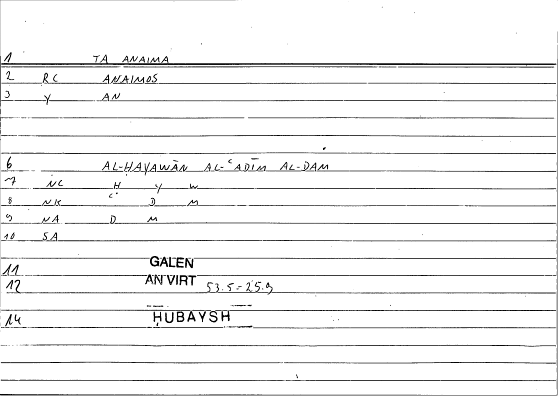 1 TA ANAIMA
2 RC ANAIMOS
3 Y AN
6 AL-ḤAYAWĀN AL-ʿADĪM AL-DAM
7 NC Ḥ Y W
8 NK ʿ D M
9 NA D M
10 SA
11 GALEN
12 AN VIRT 53.5-25.9
14 ḤUBAYSH